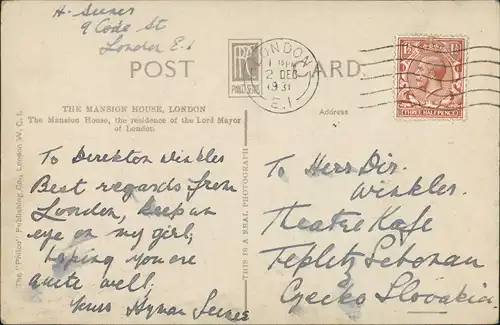 H. Seener
9 Code St
London E.1
POST CARD.
LONDON
1 15 PM
2 DEC
1931
E.1
THREE HALFPENCE
THE MANSION HOUSE, LONDON
The Mansion House, the residence of the Lord Mayor
of London
Address
To Direkton Winkler
Best regards from
London, Keep an
eye on my girl,
hoping you are
quite well,
Yours Hyman Seener
To Herr Dir.
Winkler.
Theatre Kafe
Teplitz Schonau
Czecko Slovakia
The "Philco" Publishing Co., London W.C.1.
THIS IS A REAL PHOTOGRAPH